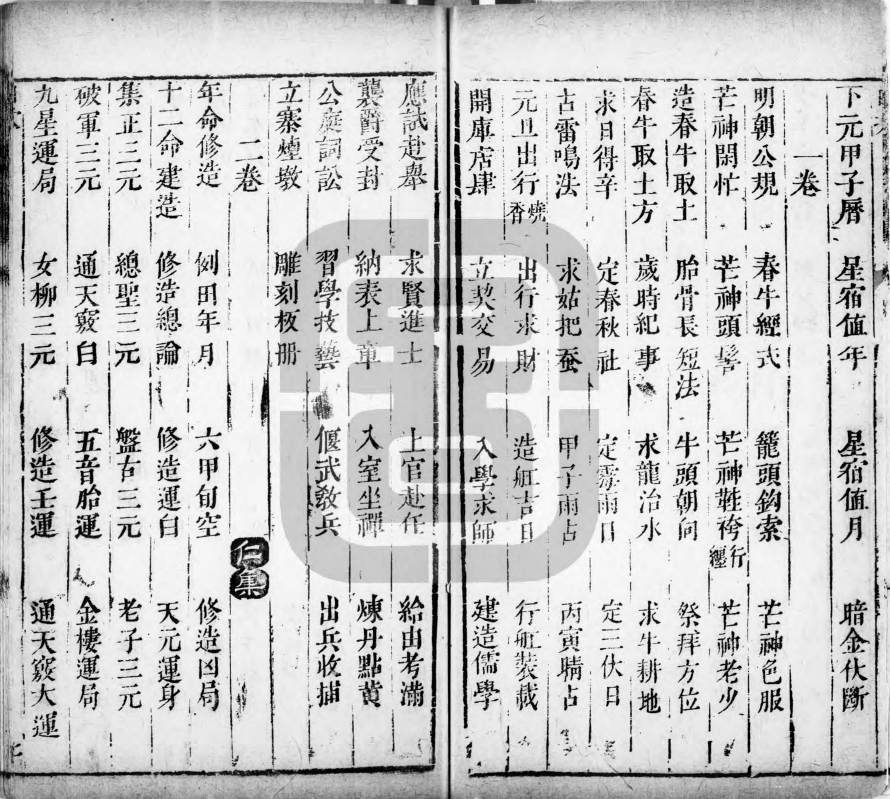 下元甲子曆 星宿值年 星宿值月 暗金伏斷
一卷
明朝公規 春牛經式 籠頭鈎索 芒神色服
芒神閑忙 芒神頭髻 芒神鞋袴行纏 芒神老少
造春牛取土 胎骨長短法 牛頭朝向 祭拜方位
春牛取土方 歲時紀事 求龍治水 求牛耕地
求日得辛 定春秋社 定霉雨日 定三伏日
占雷鳴法 求姑把蚕 甲子雨占 丙寅晴占
元旦出行燒香 出行求財 造舡吉日 行舡裝載
開庫店肆 立契交易 入學求師 建造儒學
應試赴舉 求賢進士 上官赴任 給由考滿
襲爵受封 納表上章 入室坐禪 煉丹點黄
公庭詞訟 習學技藝 偃武教兵 出兵收捕
立寨煙墩 雕刻板册
二卷 仁集
年命修造 例田年月 六甲旬空 修造凶局
十二命建造 修造總論 修造運白 天元運身
集正三元 總聖三元 盤古三元 老子三元
破軍三元 通天竅白 五音胎運 金樓運局
九星運局 女柳三元 修造壬運 通天竅大運